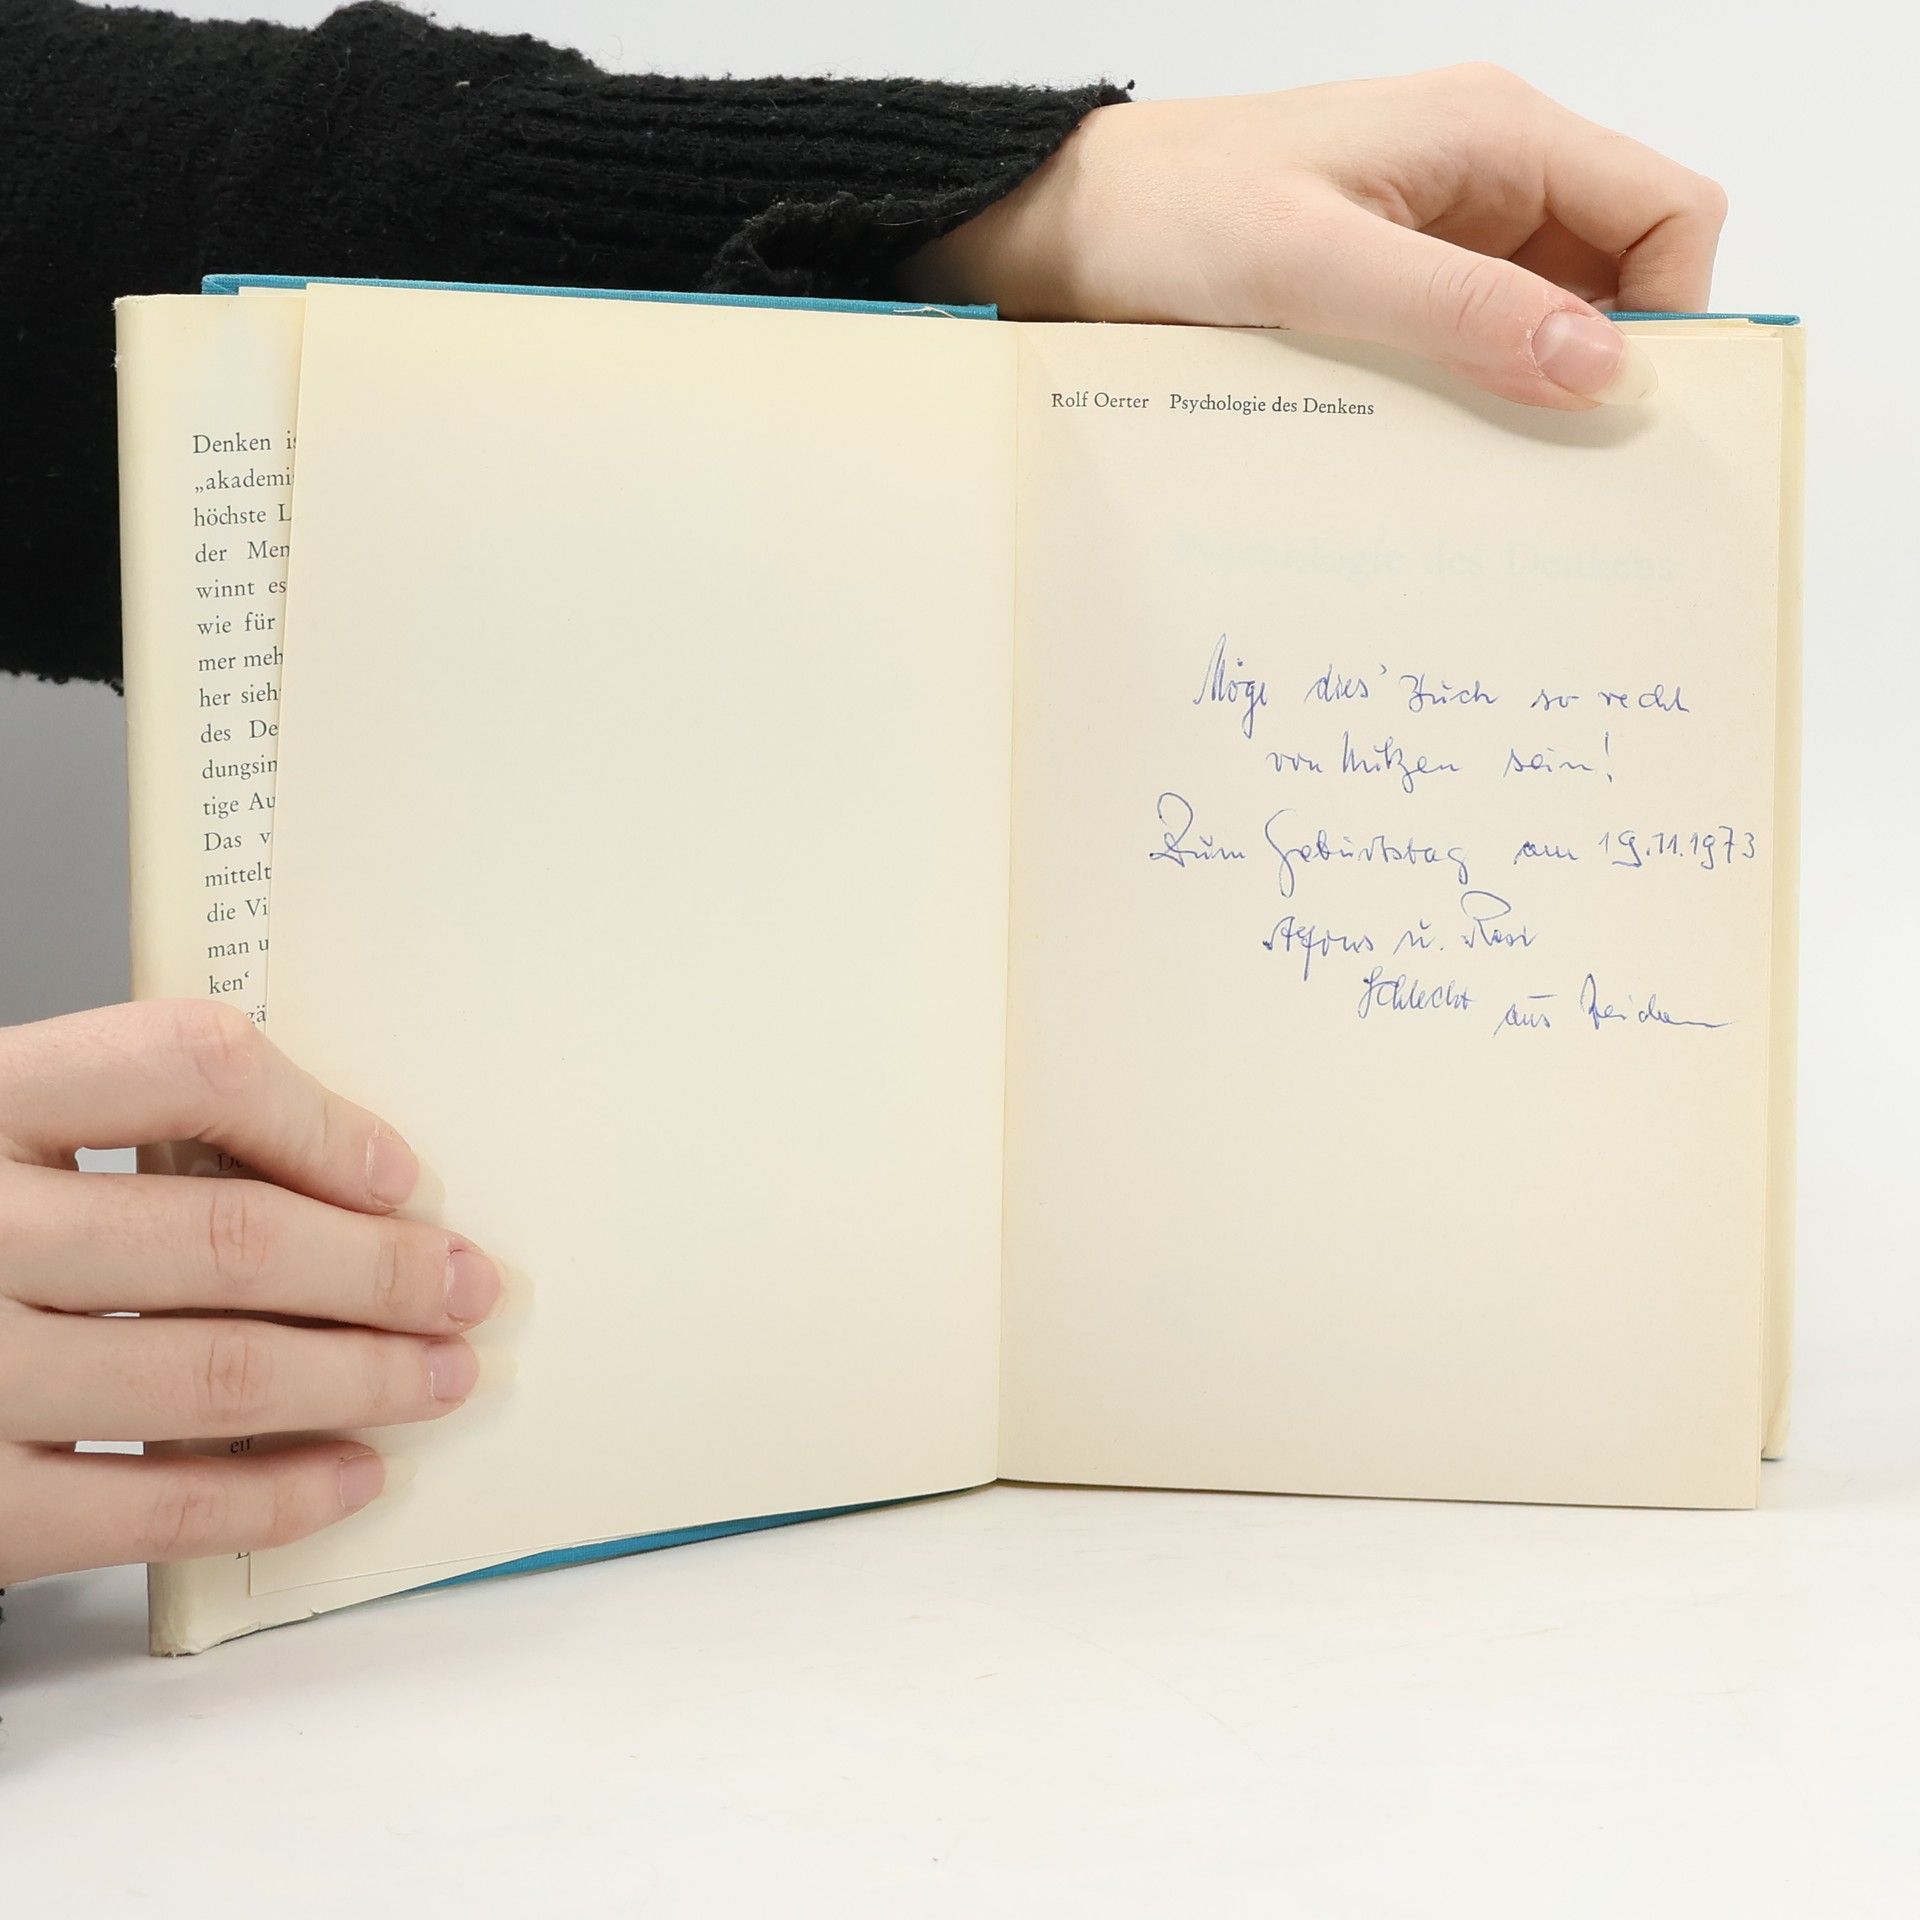 Denken is
„akademi
höchste L
der Men
winnt es
wie für
mer meh
her sieh
des De
dungsin
tige Au
Das v
mittelt
die Vi
man u
ken‘
gä
ein
Rolf Oerter Psychologie des Denkens
Psychologie des Denkens
Möge dies' Buch so recht
von Nutzen sein!
Zum Geburtstag am 19.11.1973
Alfons u. Resi
Schlecht aus